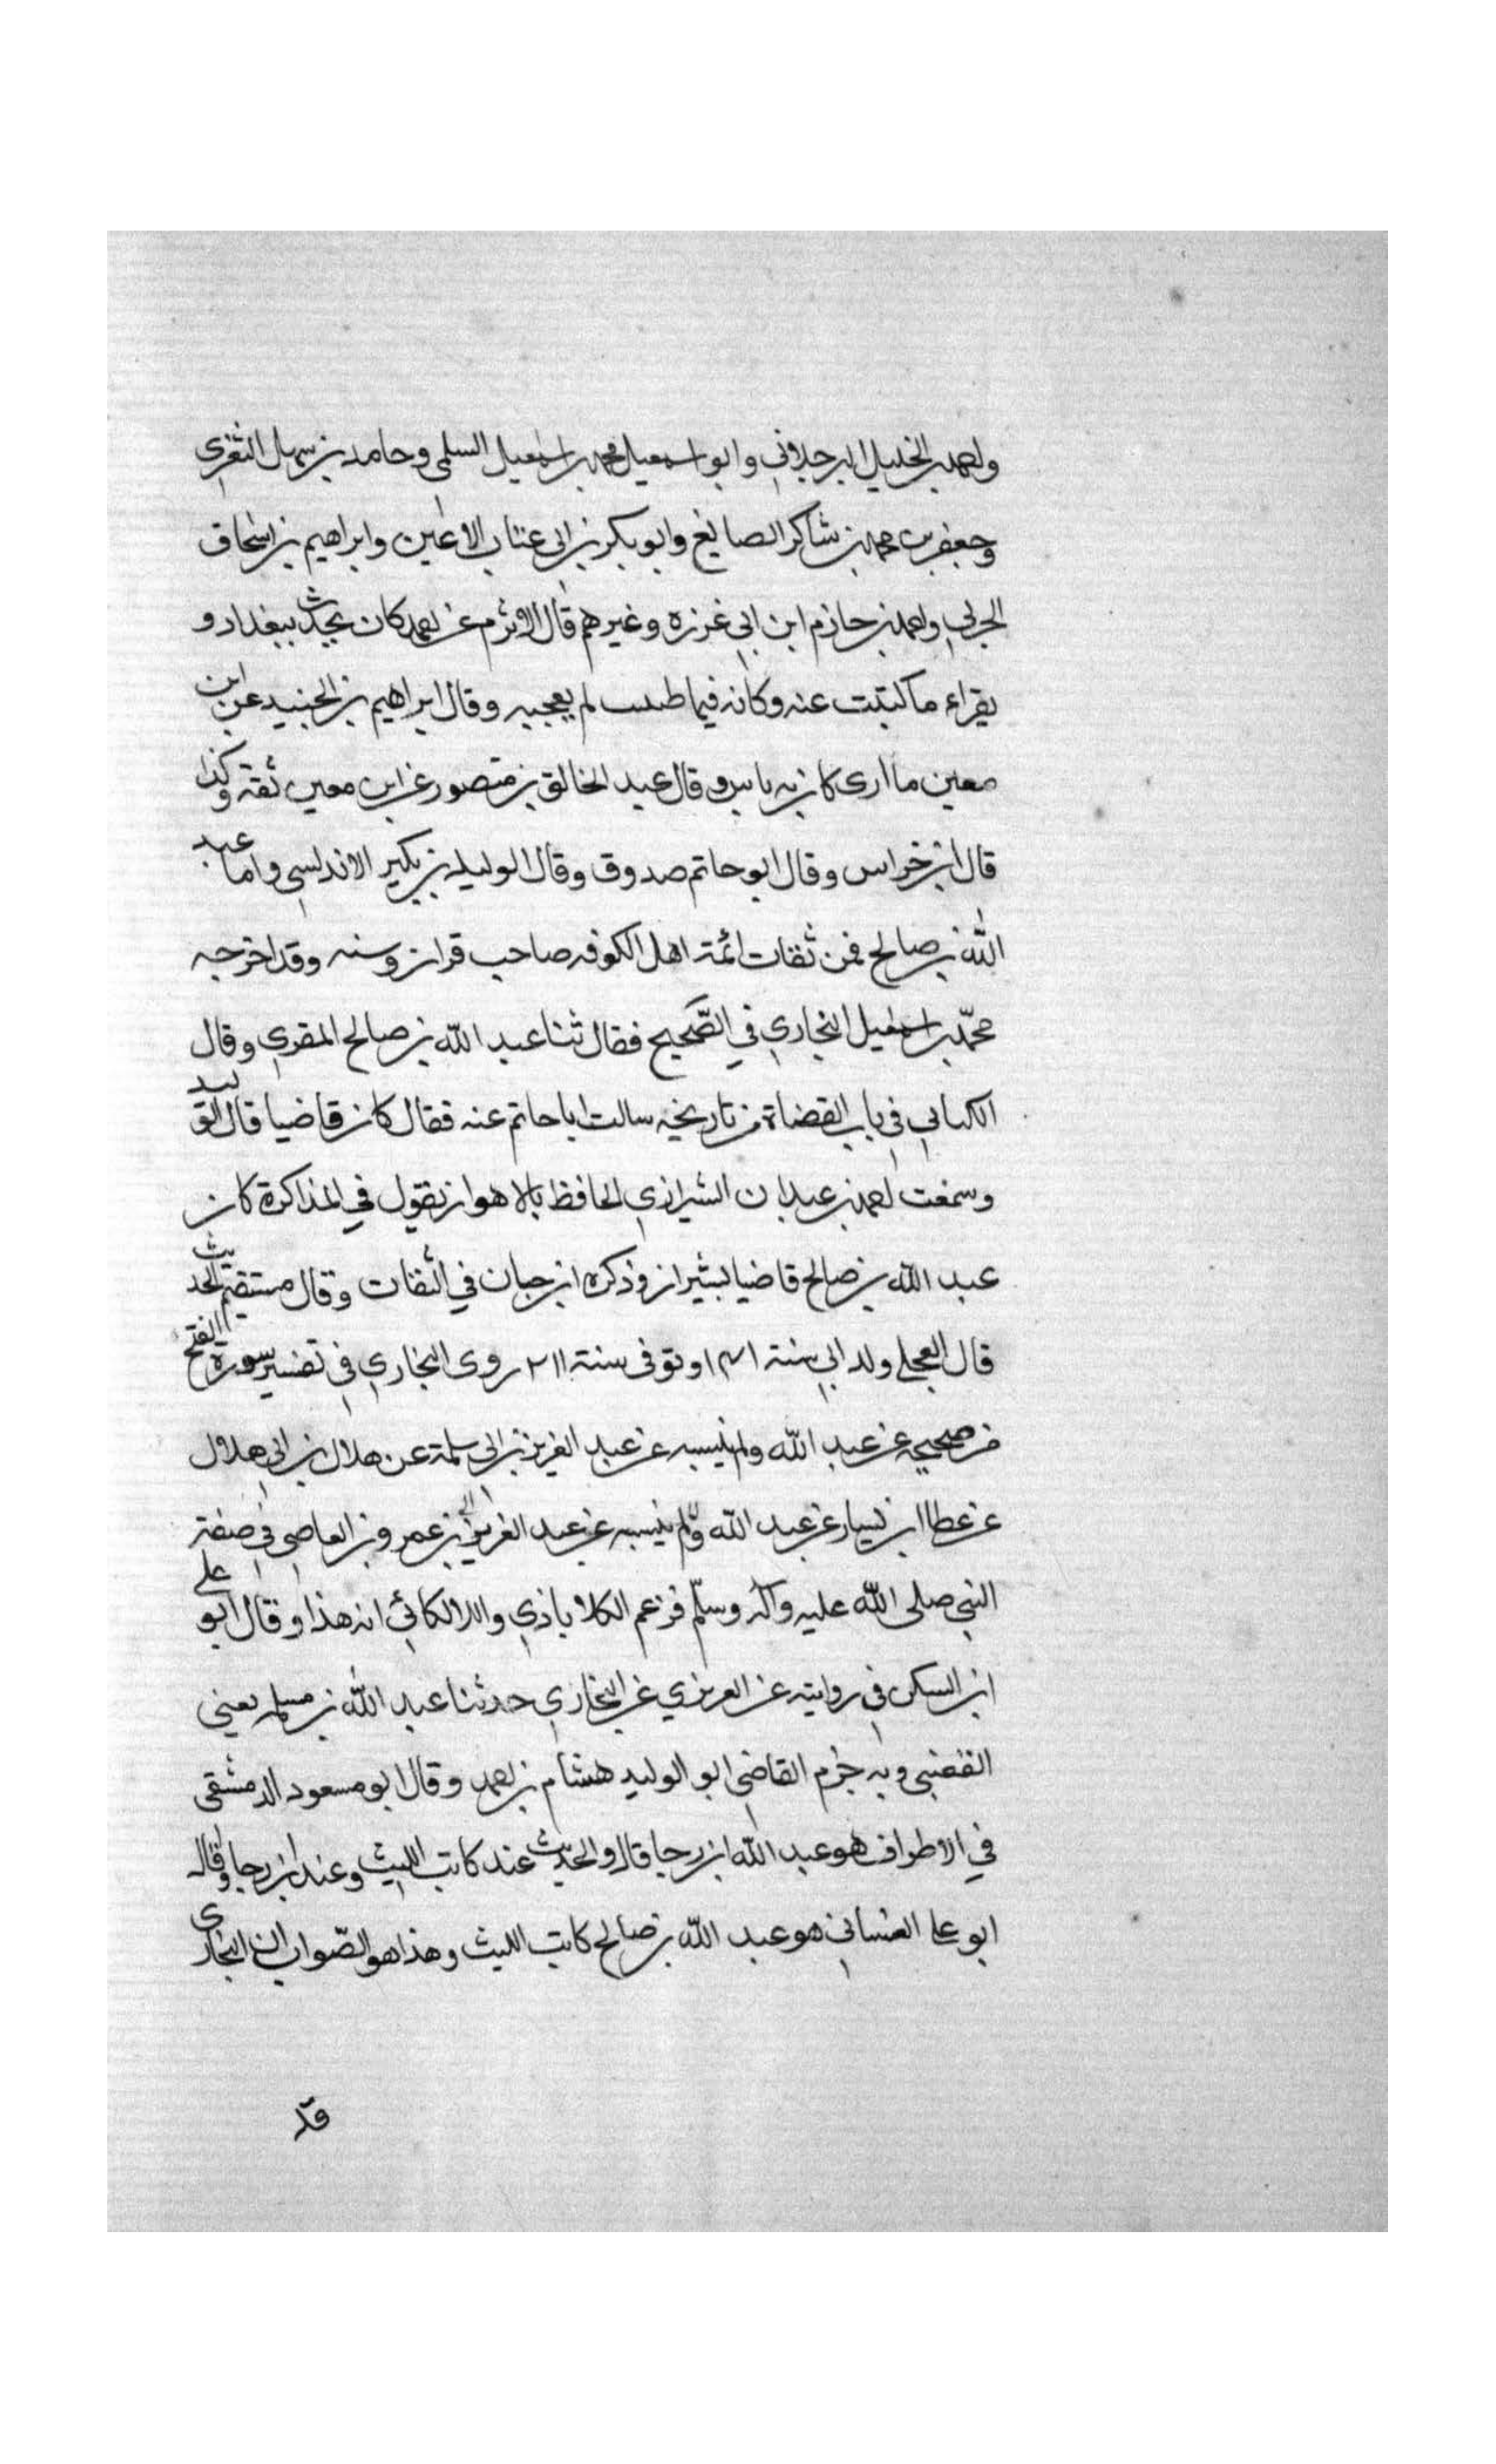 واحمد بن الخليل البرجلاني وابو اسمعيل محمد بن اسمعيل السلمي وحامد بن سهل الثغري
وجعفر بن محمد بن شاكر الصايغ وابو بكر بن ابى عتاب الاعين وابراهيم بن اسحاق
الحربي واحمد بن حازم ابن ابي غرزه وغيرهم قال الاثرم عن احمد كان يحدث ببغداد و
يقراء ما كتبت عنه وكانه فيما طننت لم يعجبه وقال ابراهيم بن الجنيد عن ابن
معين ما ارى كان به باس وقال عبد الخالق بن منصور عن ابن معين ثقة وكذا
قال ابن خراس وقال ابو حاتم صدوق وقال الوليد بن بكير الاندلسي واما عبد
الله بن صالح فمن ثقات ائمة اهل الكوفه صاحب قران وسنه وقد اخرجه
محمّد بن اسمعيل البخاري في الصّحيح فقال ثنا عبد الله بن صالح المقري وقال
الكبابي في باب القضاة من تاريخه سالت ابا حاتم عنه فقال كان قاضيا قال الوليد
وسمعت احمد بن عبدان الشيرازي الحافظ بالاهواز يقول في المذاكرة كان
عبد الله بن صالح قاضيا بشيراز وذكره ابن حبان في الثقات وقال مستقيم الحديث
قال العجلي ولد ابي سنة ١٤١ وتوفى سنة ٢١١ روى البخاري في تفسير سورة الفتح
من صحيحه عن عبد الله ولم ينسبه عن عبد العزيز بن ابى سلمة عن هلال بن ابي هلال
عن عطا ابن يسار عن عبد الله ولم ينسبه عن عبد العزيز بن عمرو بن العاصي في صفة
النبي صلى الله عليه وآله وسلّم فزعم الكلاباذي واللالكائي انه هذا وقال ابو على
ابن السكن في روايته عن العزيزي عن البخاري حدثنا عبد الله بن مسلمه يعني
القعنبي وبه جزم القاضي ابو الوليد هشام بن احمد وقال ابو مسعود الدمشقي
في الاطراف هو عبد الله ابن رجا قال والحديث عند كاتب الليث وعند ابن رجا وقال
ابو علي الغساني هو عبد الله بن صالح كاتب الليث وهذا هو الصّواب لان البخاري
قد